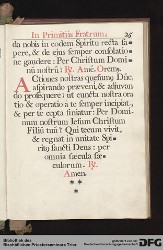 In Primitiis Fratrum. 25
da nobis in eodem Spiritu recta sa-
pere, & de ejus semper consolatio-
ne gaudere: Per Christum Domi-
num nostrũ: ℟. Amẽ. Oremus.
Actiones nostras quęsumq Dñe
aspirando præveni, & adjuvan
do prosequere: ut cuncta nostra ora
tio & operatio a te semper incipiat,
& per te cœpta finiatur: Per Domi-
num nostrum Iesum Christum
Filiũ tuũ: Qui tecum vivit,
& regnat in unitate Spi-
ritus sancti Deus: per
omnia sæcula sæ-
culorum. ℟.
Amen.
Bibliothek des
Bischöflichen Priesterseminars Trier
DFG